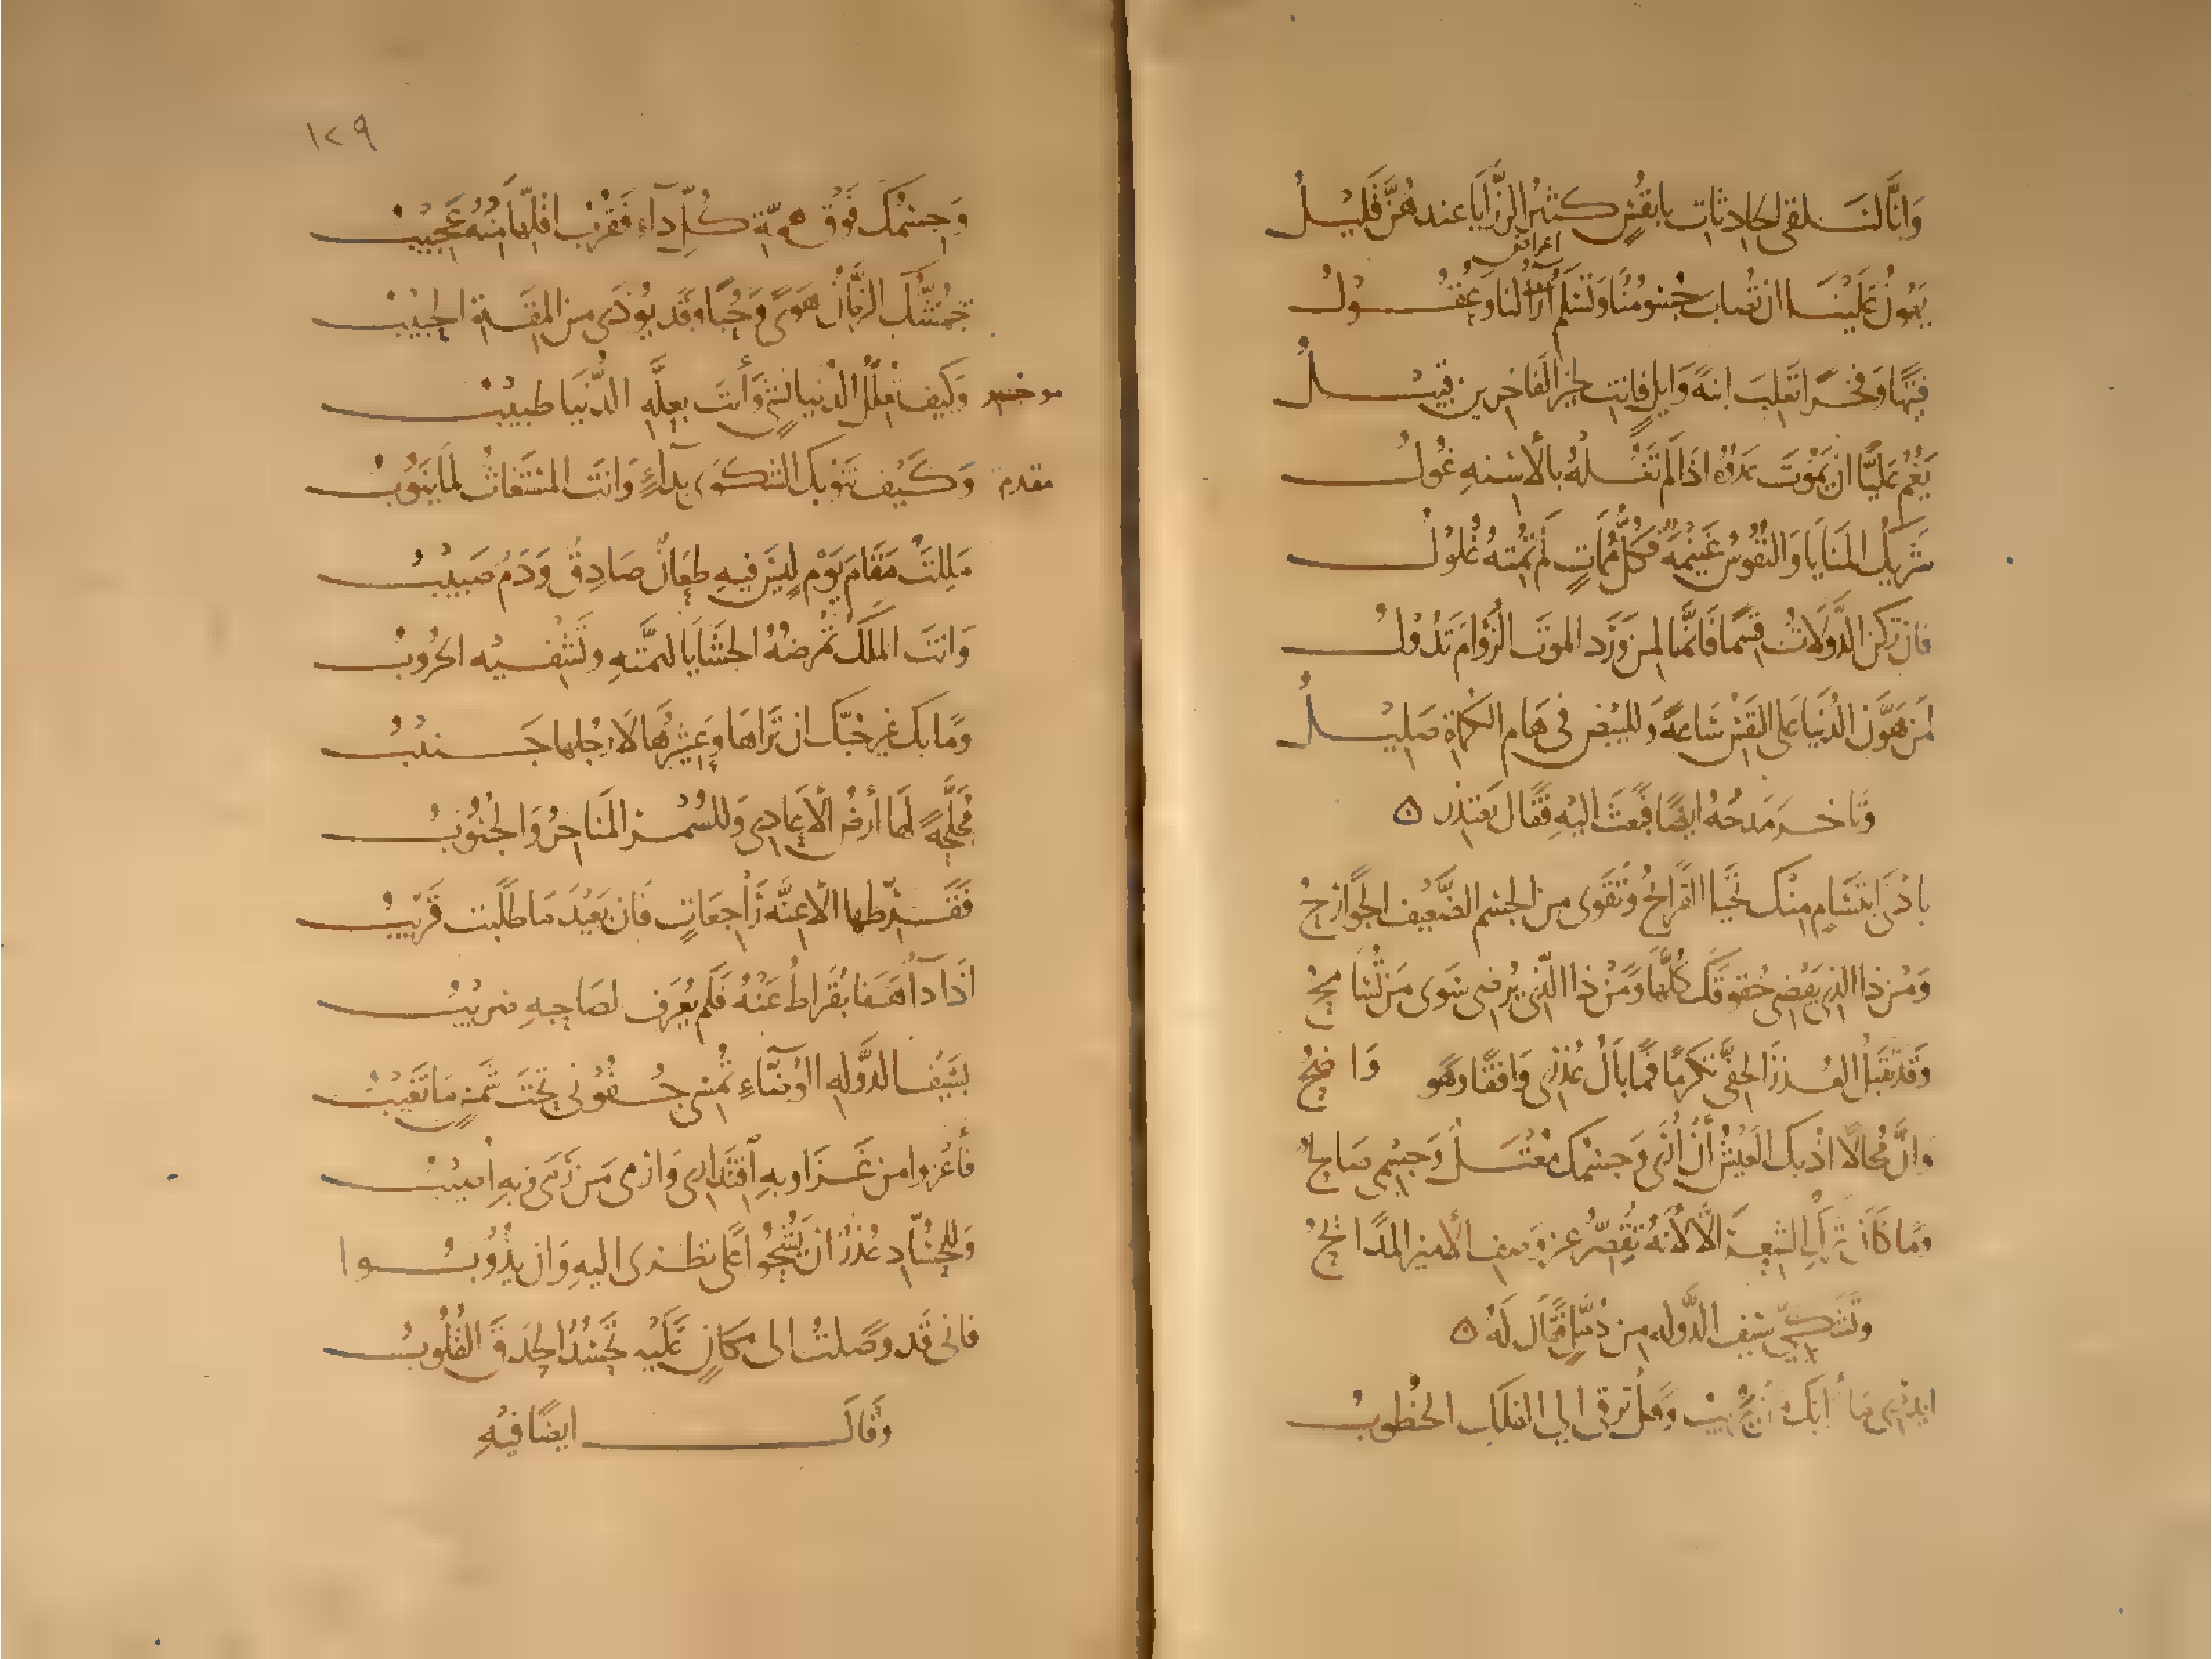 وَانَّا لنَلقى الحادِثاتِ بانفُسٍ كثيرُ الرَّزايَا عندهُنَّ قَليْلُ
اعراض
يَهُونُ عَلَيْنَا ان تُصابَ جُسُومُنَا وَتَسْلمَ آرآءٌ لنا وَعُقُولُ
فتِيهًا وَفخرًا تَغلِبَ ابنةَ وَايلٍ فانتِ لخيرِ الفَاخِرين قبِيْلُ
يَغُمُّ عَليًّا انْ يَمُوْتَ عَدُوّه اذا لَم تَغُلْهُ بالأسنهِ غُولُ
شَريكُ المَنايَا وَالنُّفُوسُ غَنِيْمَةٌ فكلُّ مَمَاتٍ لَم يُمتهُ غُلُولُ
فان تكن الدَّوْلَاتُ قِسْمًا فَانَّهَا لمن وَرَد الموتَ الزُّؤامَ تَدُولُ
لمَن هَوَّنَ الدُّنيَا عَلى النَّفسِ سَاعةً وَللبيْضِ فى هَامِ الكُماةِ صَليْلُ
وَتاخر مَدحُهُ ايضًا فبعَثَ اليْهِ فقال يَعْتذر ٥
بادْنَى ابتسَامٍ منْكَ تَحيَا القرائحُ وَتَقْوَى من الجسْمِ الضَّعيف الجوَارحُ
وَمَنْ ذا الذي يَقضِى حُقوقَكَ كُلَّهَا وَمَنْ ذا الَّذى يُرضى سِوَى مَن تُسَامحُ
وَقد تقبَلُ العُذرَ الخفىَّ تكرمًا فمَا بَالُ عُذرى وَاقفًا وهو وَاضِحُ
وانَّ مُحالًا اذ بكَ العَيْشُ أنْ أُرَى وَجسْمُكَ مُعْتَلٌ وَجسْمِى صَالحُ
ومَا كَانَ ترْكِى الشِعرَ الَّا لأنَّهُ تُقصِّرُ عن وَصف الأمير المدَائحُ
وَتَشكّى سَيف الدَّوله من دُمَّلٍ فَقَال لَهُ ٥
ايَدْرِى مَا أرَابَكَ مَنْ يُريْبُ وَهَلْ تَرقى الى الفلَكِ الخُطُوبُ
١٢٩
وَجسْمُكَ فَوْقَ همّةِ كُلِّ دآءٍ فَقُرْبُ اقَلّهَا منْهُ عَجِيْبُ
يُجَمّشُكَ الزَّمَانُ هَوًى وَحُبًّا وَقَد يُوْذَى من المِقَةِ الحبيْبُ
موخر وَكيفَ تُعِلُّكَ الدُنيا بشىٍ وَأنتَ بعِلَّهِ الدُّنيَا طبيْبُ
مقدم وَكَيْفَ تَنُوبُكَ الشكوَى بدآءٍ وَانتَ المُستَغاثُ لمَا يَنُوْبُ
مَلِلتَ مَقَامَ يَوْمٍ لَيسَ فِيهِ طِعَانٌ صَادِقٌ وَدَمٌ صَبِيْبُ
وَانتَ المَلكُ تُمْرِضهُ الحَشَايَا لهمّتهِ وتَشْفيْه الحُروبُ
وَمَا بكَ غير حُبّكَ ان تَرَاهَا وعِثْيَرُهَا لأرجُلهَا جَنيْبُ
مُجَلَّحَةً لَهَا أرضُ الأعادِى وَللسُّمرِ المنَاحِرُ وَالجنُوْبُ
فَقَرّطها الأعِنَّه رَاجِعَاتٍ فَان بَعيْدَ مَا طَلَبت قَرِيْبُ
اذَا دآءٌ هَفَا بُقْراطُ عَنْهُ فَلَم يُعْرَف لصَاحِبهِ ضَريْبُ
بسَيْفِ الدَّوْلهِ الوُضّآءِ تُمسى جُفُوْنى تحْتَ شَمسٍ مَا تَغيْبُ
فأغزوا من غَزا وبهِ اقتدَارى وَارمى مَن رَمَى وَبهِ أصيْبُ
وَللحُسّادِ عُذرٌ انْ يَشُحُّوا عَلى نظرى اليهِ وَان يذُوْبُوا
فانى قَد وَصَلتُ الى مكانٍ عَلَيْهِ تَحْسُدُ الحِدَقَ القُلُوبُ
وَقَال ايضًا فِيْهِ